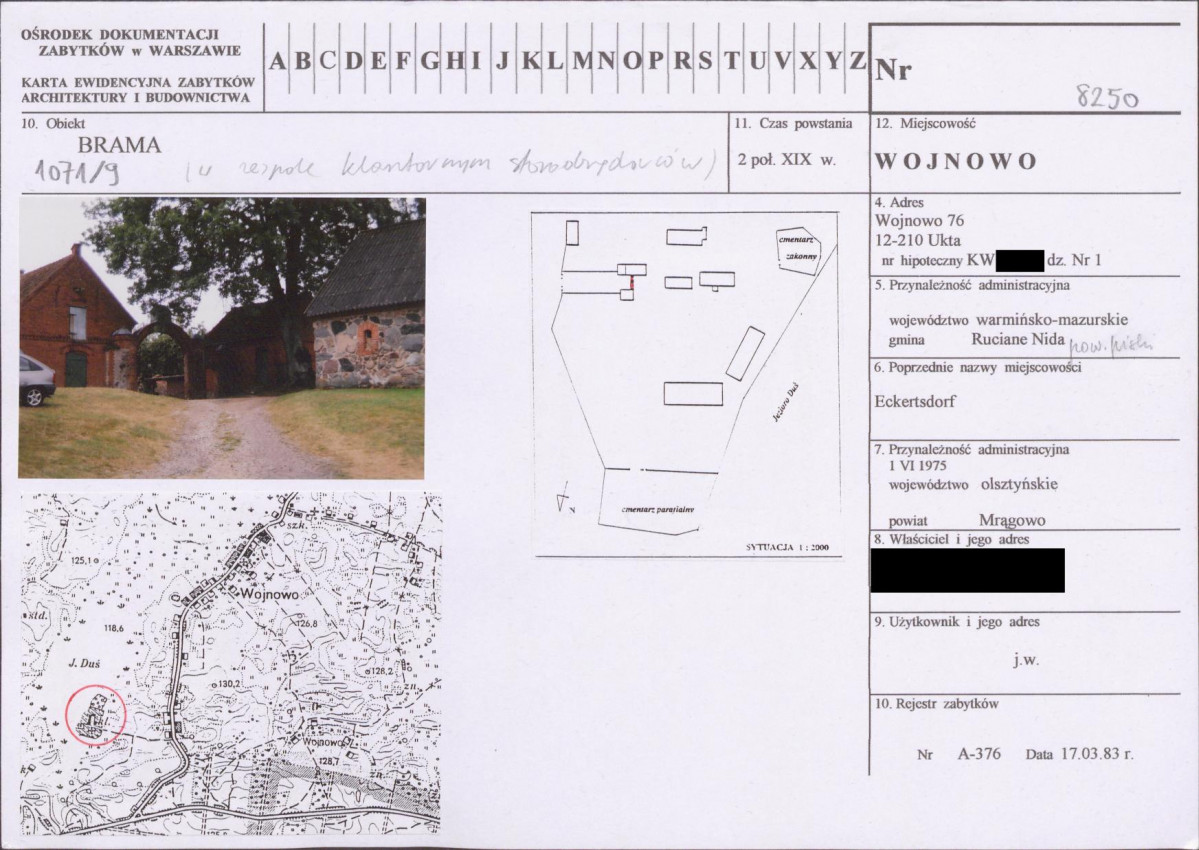 OŚRODEK DOKUMENTACJI
ZABYTKÓW w WARSZAWIE
KARTA EWIDENCYJNA ZABYTKÓW
ARCHITEKTURY I BUDOWNICTWA
A B C D E F G H I J K L M N O P R S T U V X Y Z
Nr
8250
10. Obiekt
BRAMA
1071/9 (w zespole klasztornym starobrzędowców)
11. Czas powstania
2 poł. XIX w.
12. Miejscowość
WOJNOWO
4. Adres
Wojnowo 76
12-210 Ukta
nr hipoteczny KW dz. Nr 1
5. Przynależność administracyjna
województwo warmińsko-mazurskie
gmina Ruciane Nida pow. piski
6. Poprzednie nazwy miejscowości
Eckertsdorf
7. Przynależność administracyjna
1 VI 1975
województwo olsztyńskie
powiat Mrągowo
8. Właściciel i jego adres
9. Użytkownik i jego adres
j.w.
10. Rejestr zabytków
Nr A-376 Data 17.03.83 r.
cmentarz
zakonny
Jezioro Duś
cmentarz parafialny
N
SYTUACJA 1 : 2000
szk.
125,1
Wojnowo
std.
118,6
126,8
J. Duś
128,2
130,2
Wojnowo
128,7